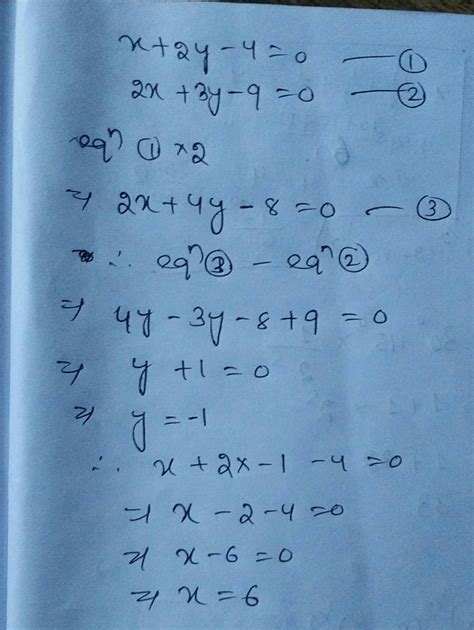 x + 2y - 4 = 0 — ①
2x + 3y - 9 = 0 — ②
eqⁿ ① × 2
⇒ 2x + 4y - 8 = 0 — ③
∴ eqⁿ ③ - eqⁿ ②
⇒ 4y - 3y - 8 + 9 = 0
⇒ y + 1 = 0
⇒ y = -1
∴ x + 2x - 1 - 4 = 0
⇒ x - 2 - 4 = 0
⇒ x - 6 = 0
⇒ x = 6